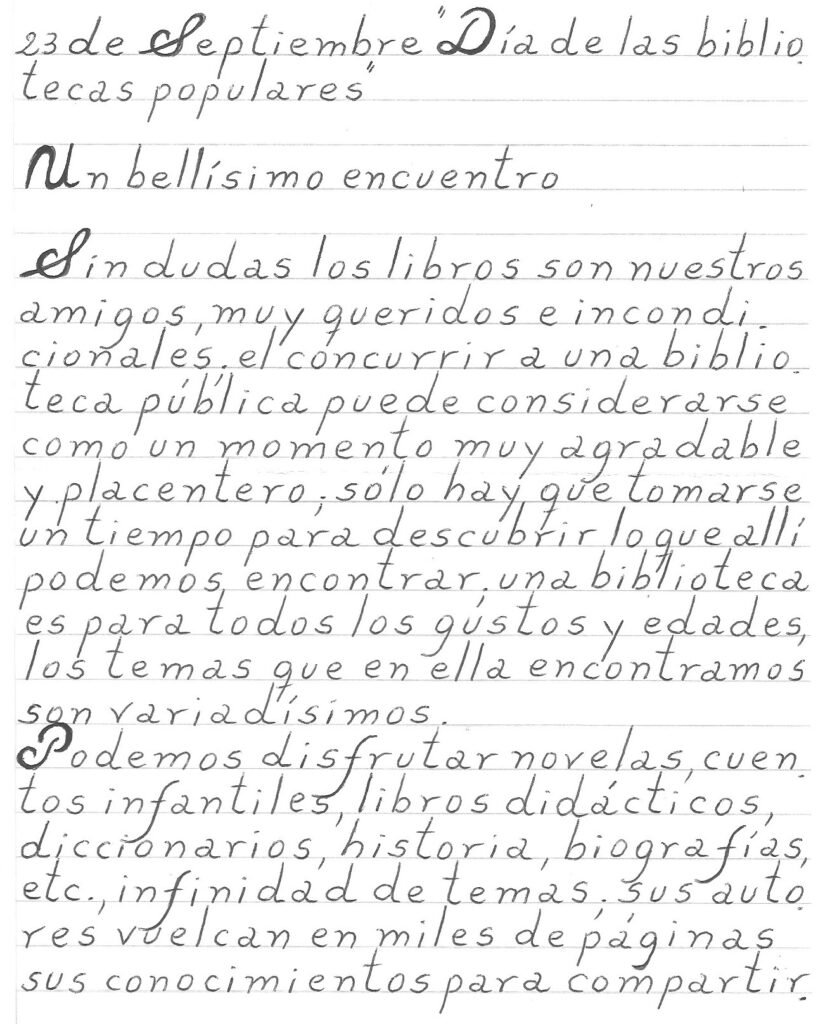 23 de Septiembre "Día de las biblio.
tecas populares"
Un bellísimo encuentro
Sin dudas los libros son nuestros
amigos, muy queridos e incondi.
cionales. el concurrir a una biblio.
teca pública puede considerarse
como un momento muy agradable
y placentero; sólo hay que tomarse
un tiempo para descubrir lo que allí
podemos encontrar. una biblioteca
es para todos los gustos y edades,
los temas que en ella encontramos
son variadísimos.
Podemos disfrutar novelas, cuen.
tos infantiles, libros didácticos,
diccionarios, historia, biografías,
etc., infinidad de temas. sus auto.
res vuelcan en miles de páginas
sus conocimientos para compartir.